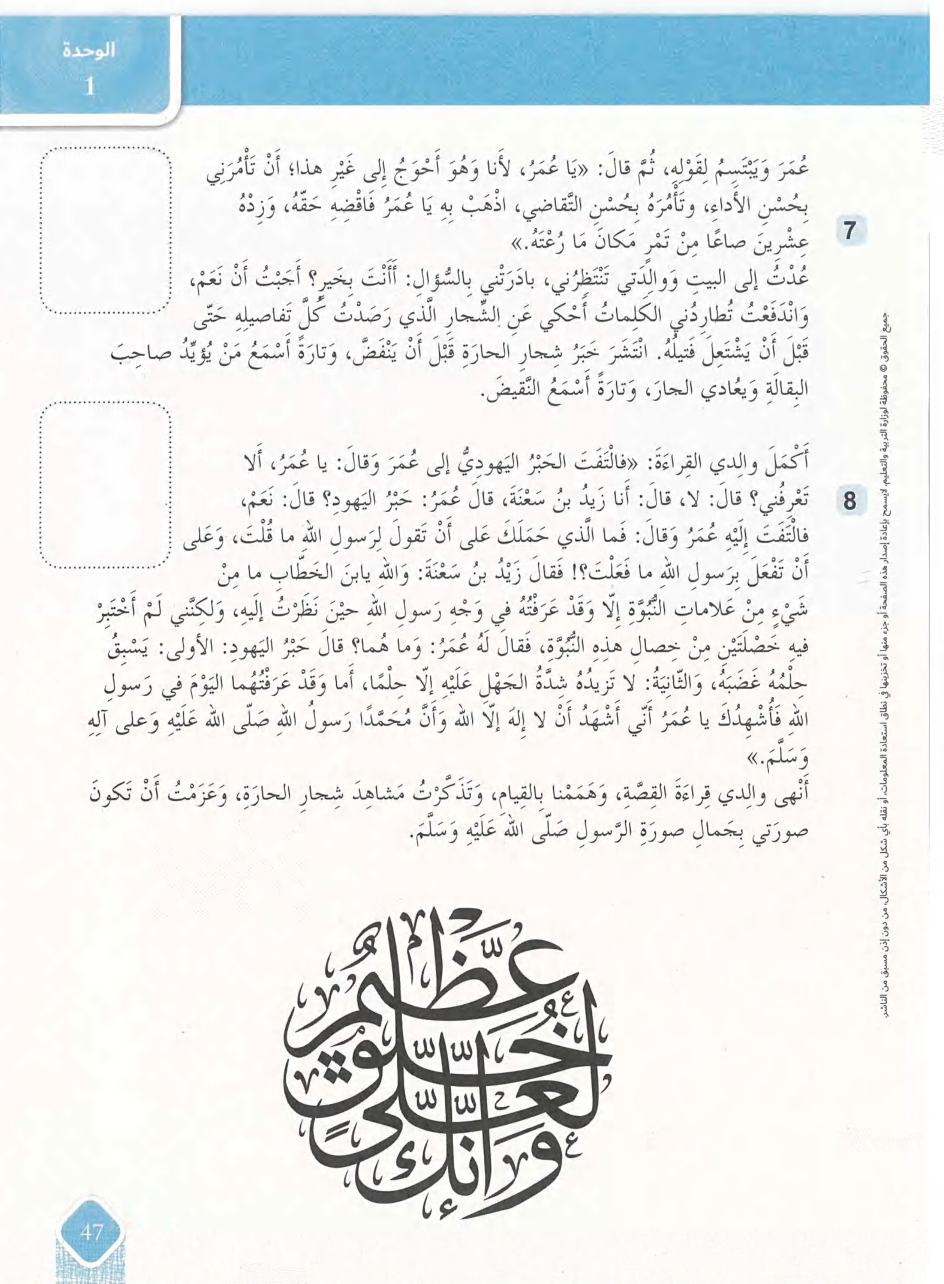 الوحدة
1
عُمَرَ وَيَبْتَسِمُ لِقَوْلِهِ، ثُمَّ قالَ: «يَا عُمَرُ، لأَنا وَهُوَ أَحْوَجُ إلى غَيْرِ هذا؛ أَنْ تَأْمُرَنِي
بِحُسْنِ الأَداءِ، وتَأْمُرَهُ بِحُسْنِ التَّقاضي، اذْهَبْ بِهِ يَا عُمَرُ فَاقْضِهِ حَقّهُ، وَزِدْهُ
7
عِشْرينَ صاعًا مِنْ تَمْرٍ مَكانَ مَا رُعْتَهُ.»
عُدْتُ إلى البيتِ وَوالِدَتي تَنْتَظِرُني، بادَرَتْني بِالسُّؤالِ: أَأَنْتَ بِخَيرٍ؟ أَجَبْتُ أَنْ نَعَمْ،
وَانْدَفَعْتُ تُطارِدُني الكَلِماتُ أَحْكي عَنِ الشِّجارِ الَّذي رَصَدْتُ كُلَّ تَفاصيلِهِ حَتّى
قَبْلَ أَنْ يَشْتَعِلَ فَتيلُهُ. انْتَشَرَ خَبَرُ شِجارِ الحارَةِ قَبْلَ أَنْ يَنْفَضَّ، وَتارَةً أَسْمَعُ مَنْ يُؤَيِّدُ صاحِبَ
البِقالَةِ وَيُعادي الجارَ، وَتارَةً أَسْمَعُ النَّقيضَ.
أَكْمَلَ والِدي القِراءَةَ: «فالْتَفَتَ الحَبْرُ اليَهودِيُّ إلى عُمَرَ وَقالَ: يا عُمَرُ، أَلا
8
تَعْرِفُني؟ قالَ: لا، قالَ: أَنا زَيدُ بنُ سَعْنَةَ، قالَ عُمَرُ: حَبْرُ اليَهودِ؟ قالَ: نَعَمْ،
فالْتَفَتَ إِلَيْهِ عُمَرُ وَقالَ: فَما الَّذي حَمَلَكَ عَلى أَنْ تَقولَ لِرَسولِ اللهِ ما قُلْتَ، وَعَلى
أَنْ تَفْعَلَ بِرَسولِ اللهِ ما فَعَلْتَ؟! فَقالَ زَيْدُ بنُ سَعْنَةَ: وَاللهِ يابنَ الخَطّابِ ما مِنْ
شَيْءٍ مِنْ عَلاماتِ النُّبُوَّةِ إلّا وَقَدْ عَرَفْتُهُ في وَجْهِ رَسولِ اللهِ حيْنَ نَظَرْتُ إليهِ، وَلكِنَّني لَمْ أَخْتَبِرْ
فيه خَصْلَتَيْنِ مِنْ خِصالِ هذِهِ النُّبُوَّةِ، فَقالَ لَهُ عُمَرُ: وَما هُما؟ قالَ حَبْرُ اليَهودِ: الأولى: يَسْبِقُ
حِلْمُهُ غَضَبَهُ، وَالثّانِيَةُ: لا تَزيدُهُ شِدَّةُ الجَهْلِ عَلَيْهِ إلّا حِلْمًا، أَما وَقَدْ عَرَفْتُهُما اليَوْمَ في رَسولِ
اللهِ فَأُشْهِدُكَ يا عُمَرُ أَنّي أَشْهَدُ أَنْ لا إلهَ إلّا الله وَأَنَّ مُحَمَّدًا رَسولُ اللهِ صَلّى الله عَلَيْهِ وَعَلى آلِهِ
وَسَلَّمَ.»
أَنْهى والِدي قِراءَةَ القِصَّةِ، وَهَمَمْنا بِالقِيامِ، وَتَذَكَّرْتُ مَشاهِدَ شِجارِ الحارَةِ، وَعَزَمْتُ أَنْ تَكونَ
صورَتي بِجَمالِ صورَةِ الرَّسولِ صَلّى اللهُ عَلَيْهِ وَسَلَّمَ.
وَإِنَّكَ لَعَلَىٰ خُلُقٍ عَظِيمٍ
جميع الحقوق © محفوظة لوزارة التربية والتعليم. لا يسمح بإعادة إصدار هذه الصفحة أو جزء منها أو تخزينها في نطاق استعادة المعلومات، أو نقله بأي شكل من الأشكال، من دون إذن مسبق من الناشر.
47